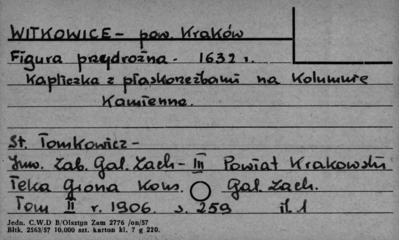 WITKOWICE - pow. Kraków
Figura przydrożna - 1632 r.
Kapliczka z płaskorzeźbami na Kolumnie
Kamienne.
St. Tomkowicz -
Inw. Zab. Gal. Zach - III Powiat Krakowski
Teka Grona Kons. Gal. Zach.
Tom II r. 1906. s. 259 il. 1
Jedn. C.W.D B/Olsztyn Zam 2776 /on/57
Bltk. 2563/57 10.000 szt. karton kl. 7 g 220.